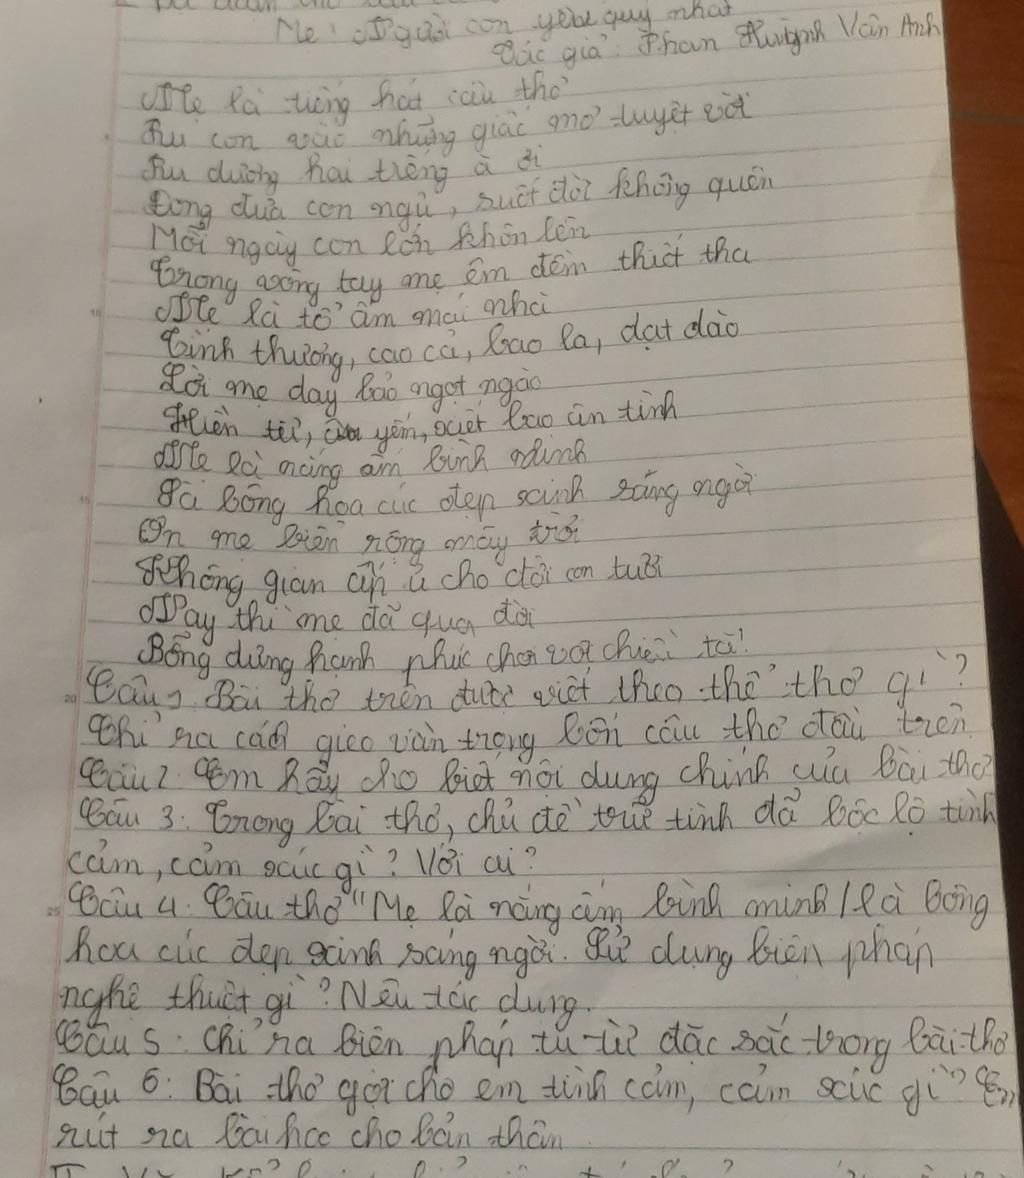 Mẹ: Người con yêu quý nhất
Tác giả: Phan Huỳnh Vân Anh
Mẹ là tiếng hát câu thơ
Ru con vào những giấc mơ tuyệt vời
Ru dương hai tiếng à ơi
Đong đưa con ngủ, suốt đời không quên
Mỗi ngày con lớn khôn lên
Trong vòng tay mẹ êm đềm thiết tha
Mẹ là tổ ấm mái nhà
Tình thương, cao cả, bao la, dạt dào
Lời mẹ dạy bảo ngọt ngào
Hiền từ, âu yếm, xiết bao ân tình
Mẹ là nắng ấm bình minh
Là bông hoa cúc đẹp xinh sáng ngời
Ơn mẹ biển rộng mây trời
Không gian ấp ủ cho đời con tươi
Nay thì mẹ đã qua đời
Bỗng dưng hạnh phúc chơi vơi chiều tà!
Câu 1. Bài thơ trên được viết theo thể thơ gì?
Chỉ ra cách gieo vần trong bốn câu thơ đầu trên.
Câu 2. Em hãy cho biết nội dung chính của bài thơ
Câu 3: Trong bài thơ, chủ đề trữ tình đã bộc lộ tình
cảm, cảm xúc gì? Với ai?
Câu 4. Câu thơ "Mẹ là nắng ấm bình minh / là bông
hoa cúc đẹp xinh sáng ngời. Sử dụng biện pháp
nghệ thuật gì? Nêu tác dụng.
Câu 5: Chỉ ra biện pháp tu từ đặc sắc trong bài thơ
Câu 6: Bài thơ gợi cho em tình cảm, cảm xúc gì? Em
rút ra bài học cho bản thân.